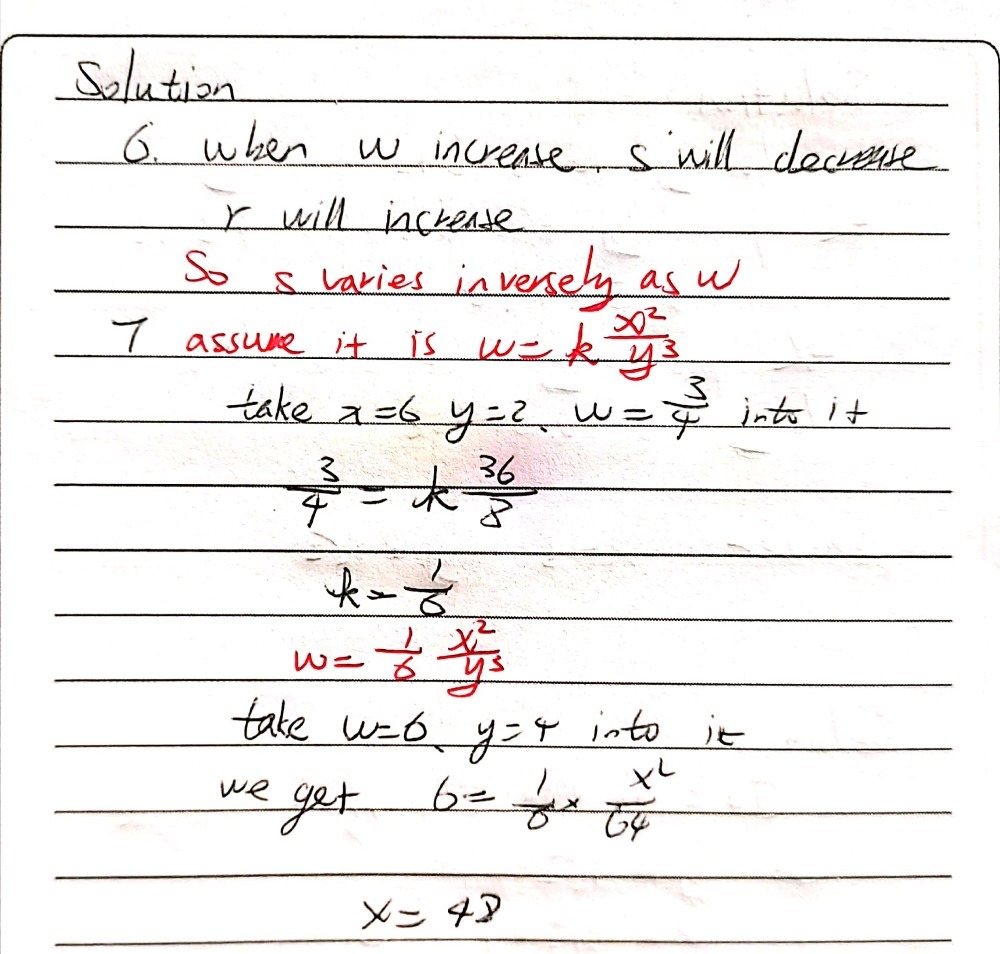 Solution
6. when w increase, s will decrease
r will increase
So s varies inversely as w
7 assume it is w = k x²/y³
take x=6 y=2、w = 3/4 into it
3/4 = k 36/8
k = 1/6
w = 1/6 x²/y³
take w=6、y=4 into it
we get 6 = 1/6 × x²/64
x = 48